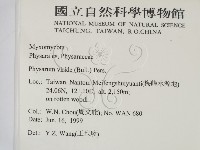 國立自然科學博物館
NATIONAL MUSEUM OF NATURAL SCIENCE
TAICHUNG, TAIWAN, R.O.CHINA
Myxomycota
Physarales, Physaraceae
Physarum viride (Bull.) Pers.
Loc.: Taiwan, Nantou, Meifengshuiyuan
24.08N, 12 alt. 2,150m,
on rotten wood.
Col.: W.N. Chou No: WAN 680
Date: Jun. 16, 1999
Det.: Y.Z. Wang